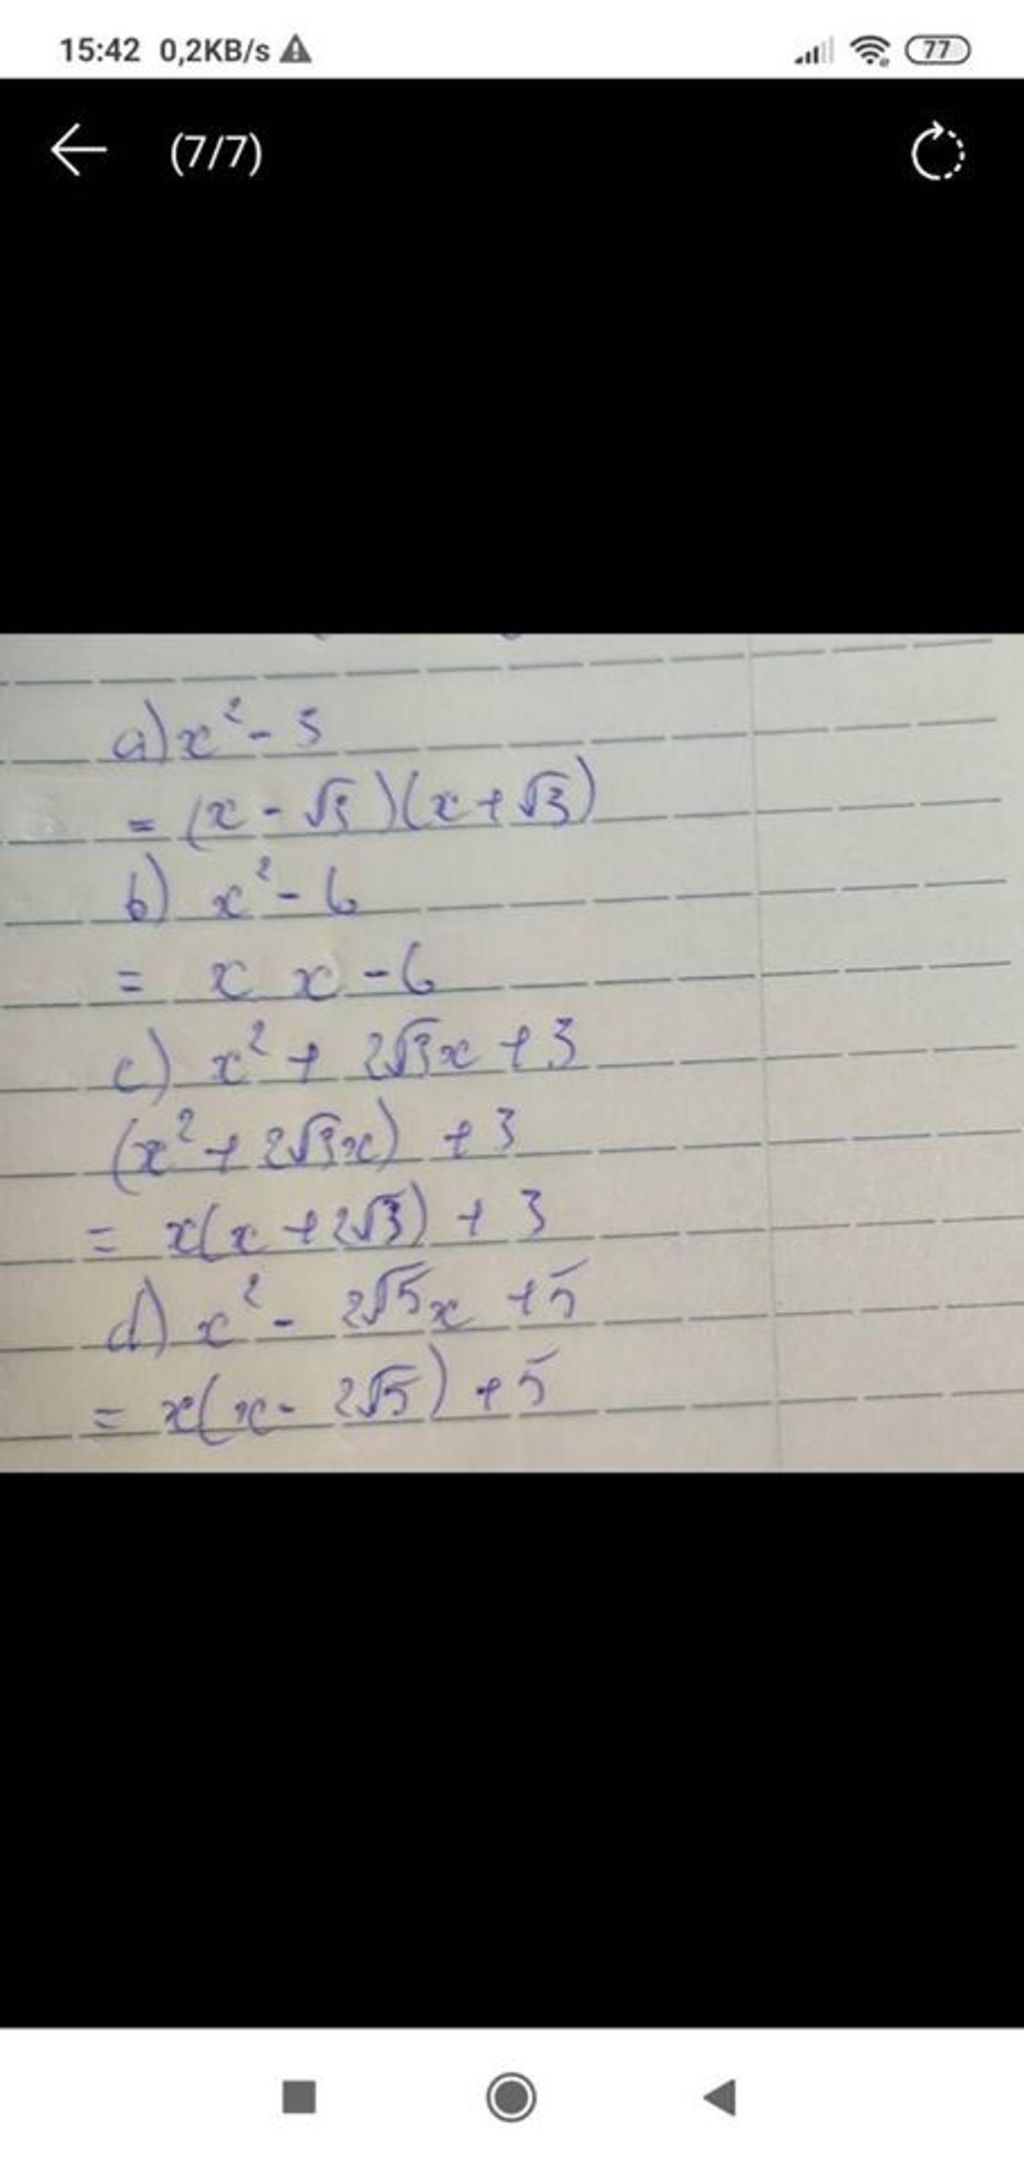 15:42 0,2KB/s
77
(7/7)
a) x² - 3
= (x - √3)(x + √3)
b) x² - 6
= x x - 6
c) x² + 2√3x + 3
(x² + 2√3x) + 3
= x(x + 2√3) + 3
d) x² - 2√5x + 5
= x(x - 2√5) + 5